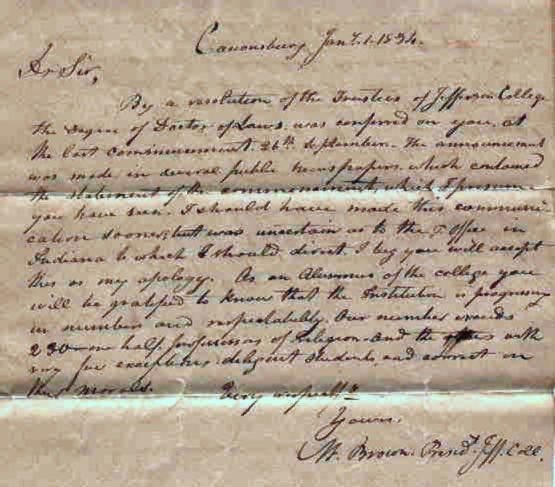 Canonsburg, Jany. 1. 1834.
Dr Sir,
By a resolution of the Trustees of Jefferson College
the degree of Doctor of Laws was conferred on you, at
the last commencement 26th September. The announcement
was made in several public newspapers, which contained
the statement of the commencement, which I presume
you have seen. I should have made this communi-
cation sooner, but was uncertain as to the P. Office in
Indiana to which I should direct. I beg you will accept
this as my apology. As an Alumnus of the college you
will be gratified to know that the Institution is progressing
in numbers and respectability. Our number exceeds
230 one half professors of religion and the with
very few exceptions diligent students, and correct in
their morals. Very respectfy
Yours,
M. Brown. Presidt. Jeff. Coll.